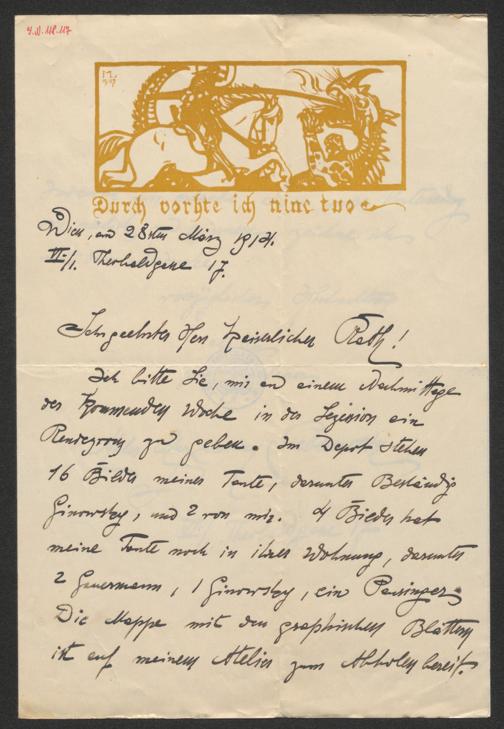 J.N. 118.117
Durch vorhte ich nine tuo
Wien, am 28ten März 1914.
VI./1. Theobaldgasse 17.
Sehr geehrter Herr kaiserlicher Rath!
Ich bitte Sie, mir an einem Nachmittage
der kommenden Woche in der Sezession ein
Rendezvous zu geben. Im Depot stehen
16 Bilder meiner Tante, darunter Beständig
Ginowsky, und 2 von mir. 4 Bilder hat
meine Tante noch in ihrer Wohnung, darunter
2 Gauermann, 1 Ginowsky, ein Pausinger.
Die Mappe mit den graphischen Blättern
ist auf meinem Atelier zum Abholen bereit.